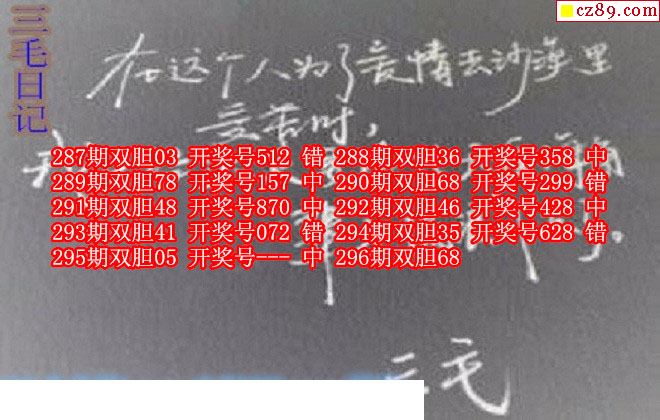 cz89.com
三毛日记
在这个人为了爱情去沙漠里
受苦时,
287期双胆03 开奖号512 错 288期双胆36 开奖号358 中
289期双胆78 开奖号157 中 290期双胆68 开奖号299 错
291期双胆48 开奖号870 中 292期双胆46 开奖号428 中
293期双胆41 开奖号072 错 294期双胆35 开奖号628 错
295期双胆05 开奖号--- 中 296期双胆68
三毛